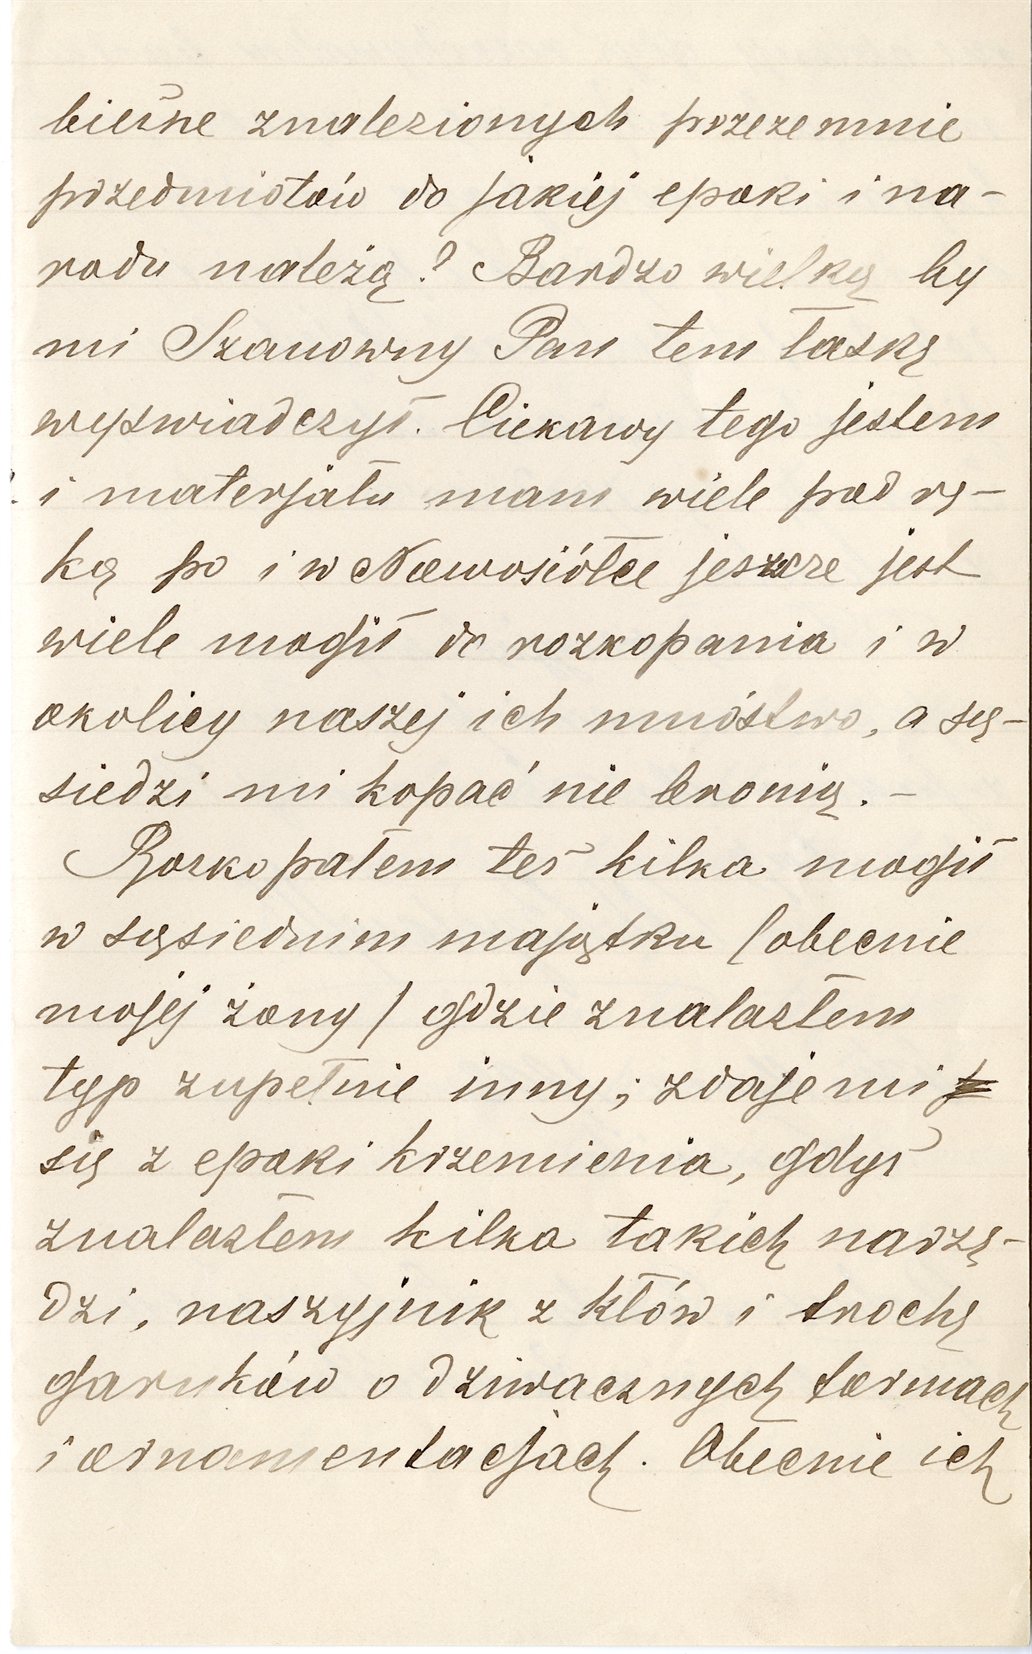 bieżne znalezionych przezemnie
przedmiotów do jakiej epoki i na-
rodu należą? Bardzo wielką by
mi Szanowny Pan tem łaskę
wyświadczył. Ciekawy tego jestem
i materjału mam wiele pod rę-
ką bo i w Nowosiółce jeszcze jest
wiele mogił do rozkopania i w
okolicy naszej ich mnóstwo, a są-
siedzi mi kopać nie bronią. -
Rozkopałem też kilka mogił
w sąsiednim majątku (obecnie
mojej żony) gdzie znalazłem
typ zupełnie inny; zdaje mi
się z epoki krzemienia, gdyż
znalazłem kilka takich narzę-
dzi, naszyjnik z kłów i trochę
garnków o dziwacznych formach
i ornamentacjach. Obecnie ich